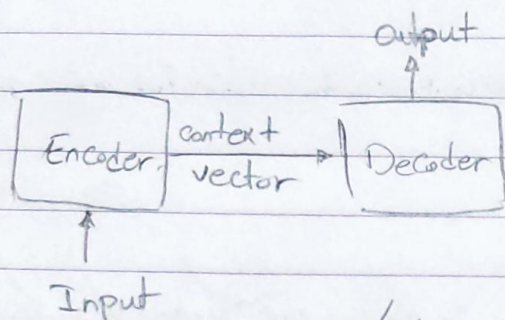 output
Encoder
context
vector
Decoder
Input